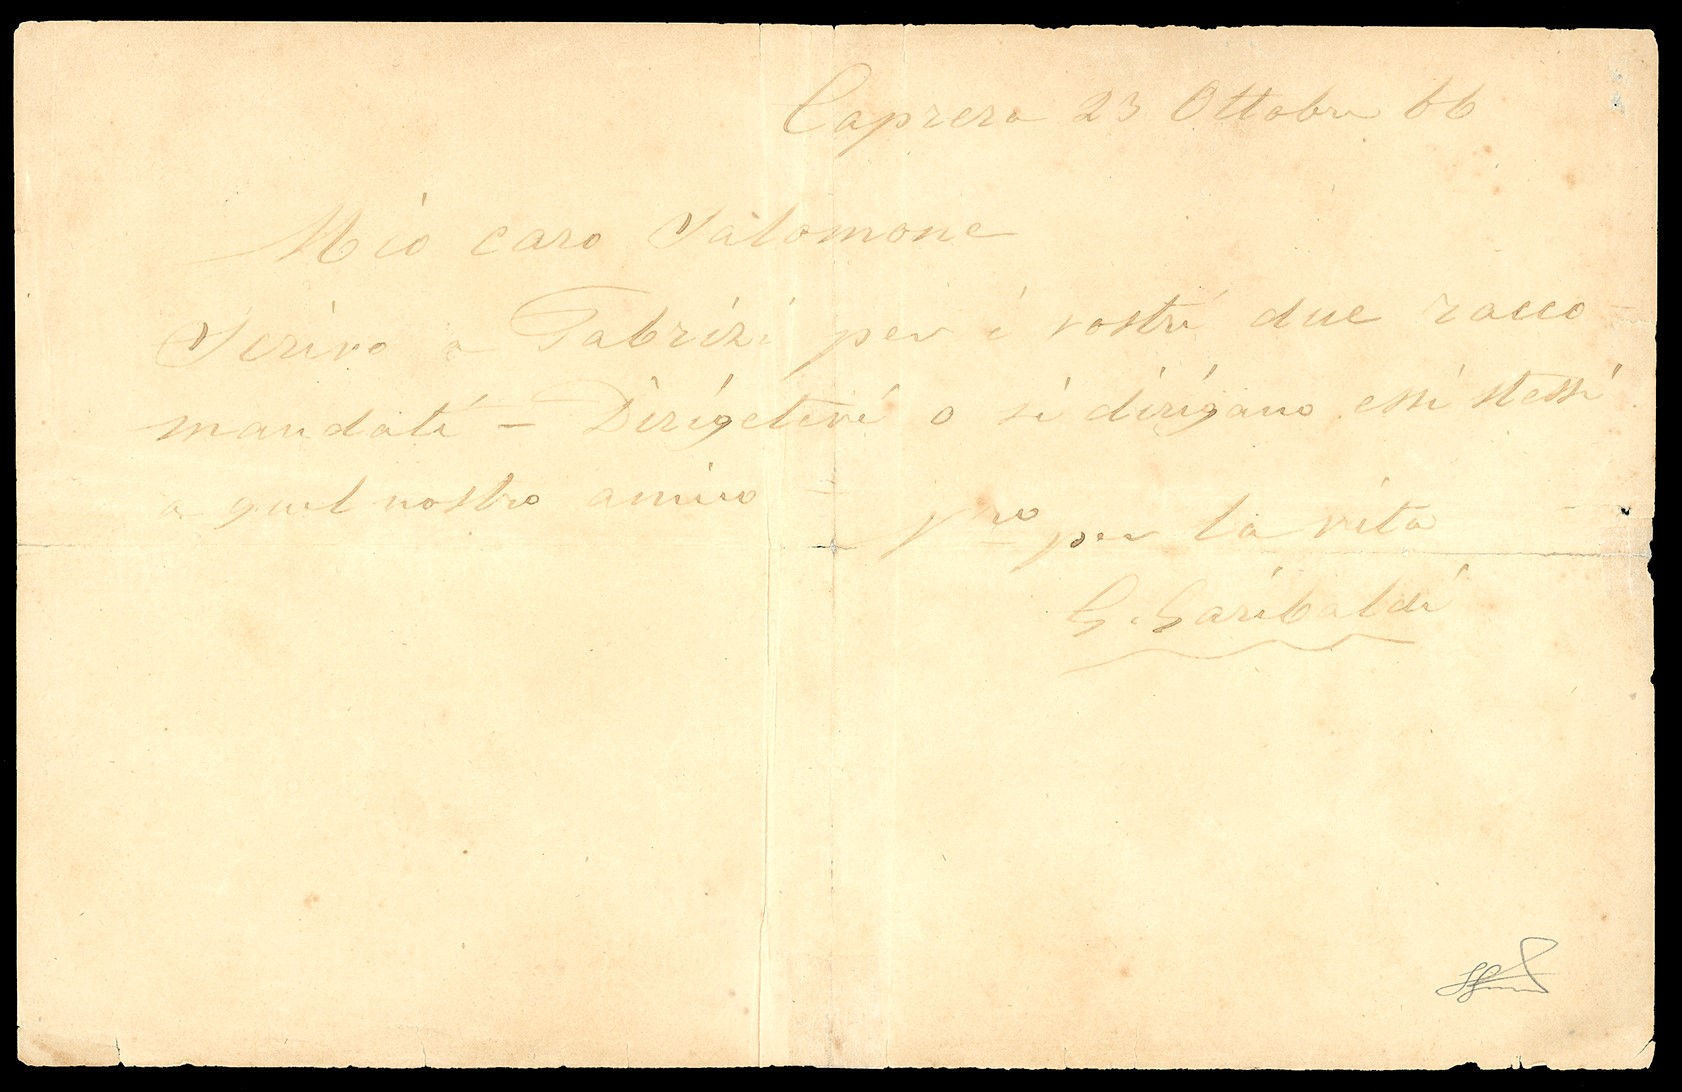 Caprera 23 Ottobre 66
Mio caro Salomone
Scrivo a Fabrizi per i vostri due racco
mandati – Dirigetevi o si dirigano essi stessi
a quel nostro amico –
Vro per la vita
G. Garibaldi